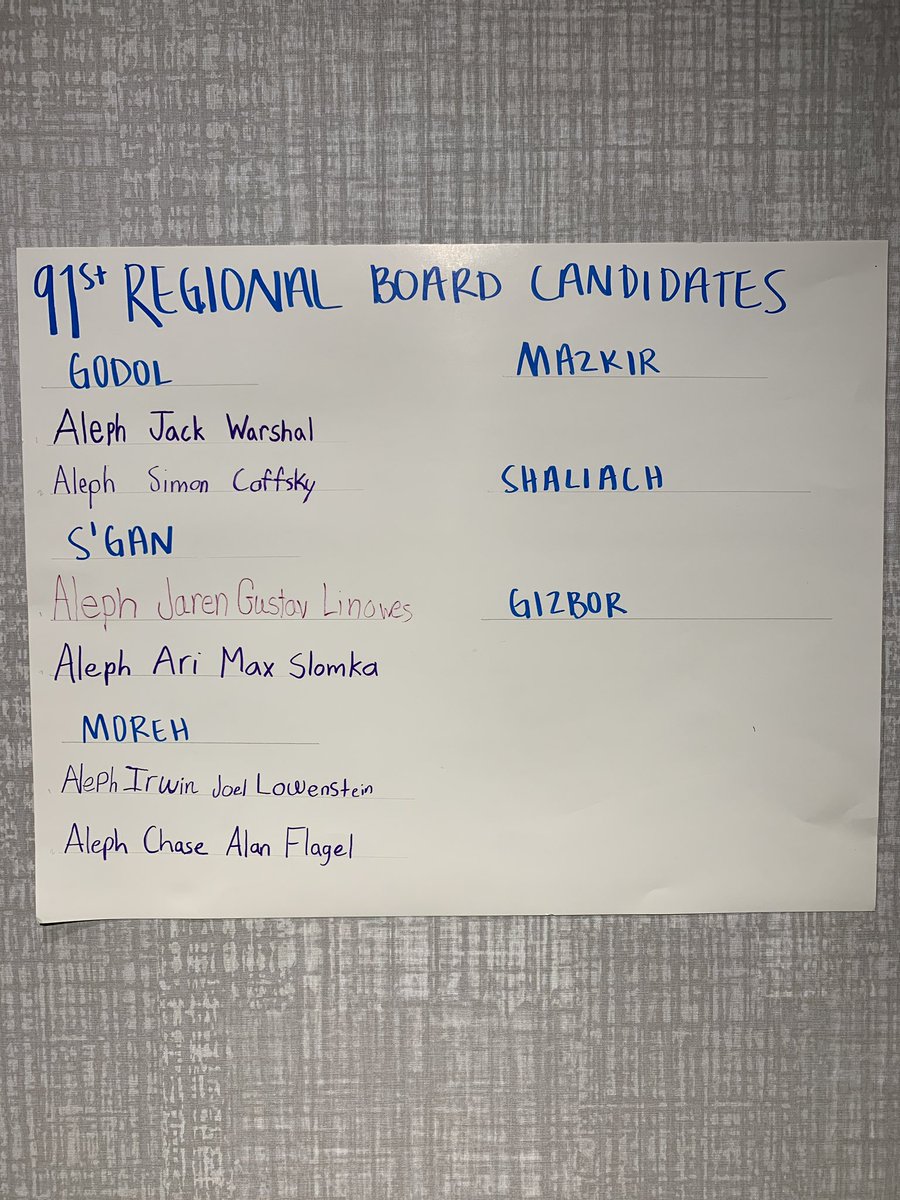 91st REGIONAL BOARD CANDIDATES
GODOL
Aleph Jack Warshal
Aleph Simon Coffsky
S'GAN
Aleph Jaren Gustav Linowes
Aleph Ari Max Slomka
MOREH
Aleph Irwin Joel Lowenstein
Aleph Chase Alan Flagel
MAZKIR
SHALIACH
GIZBOR